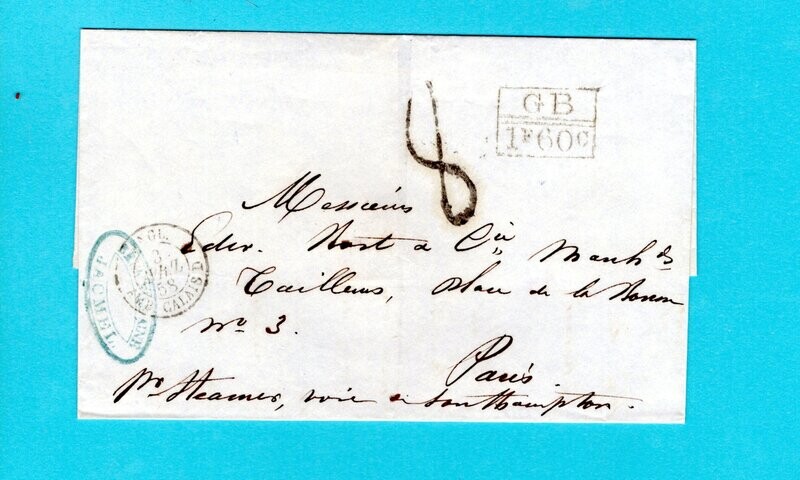 8
GB
1F60C
Messieurs
Edw. & Cie March ds
Tailleurs, Place de la Bourse
No 3.
Paris.
pr Steamer, voie Southampton.
JACMEL
ANGL.
JUIL.
58
CALAIS